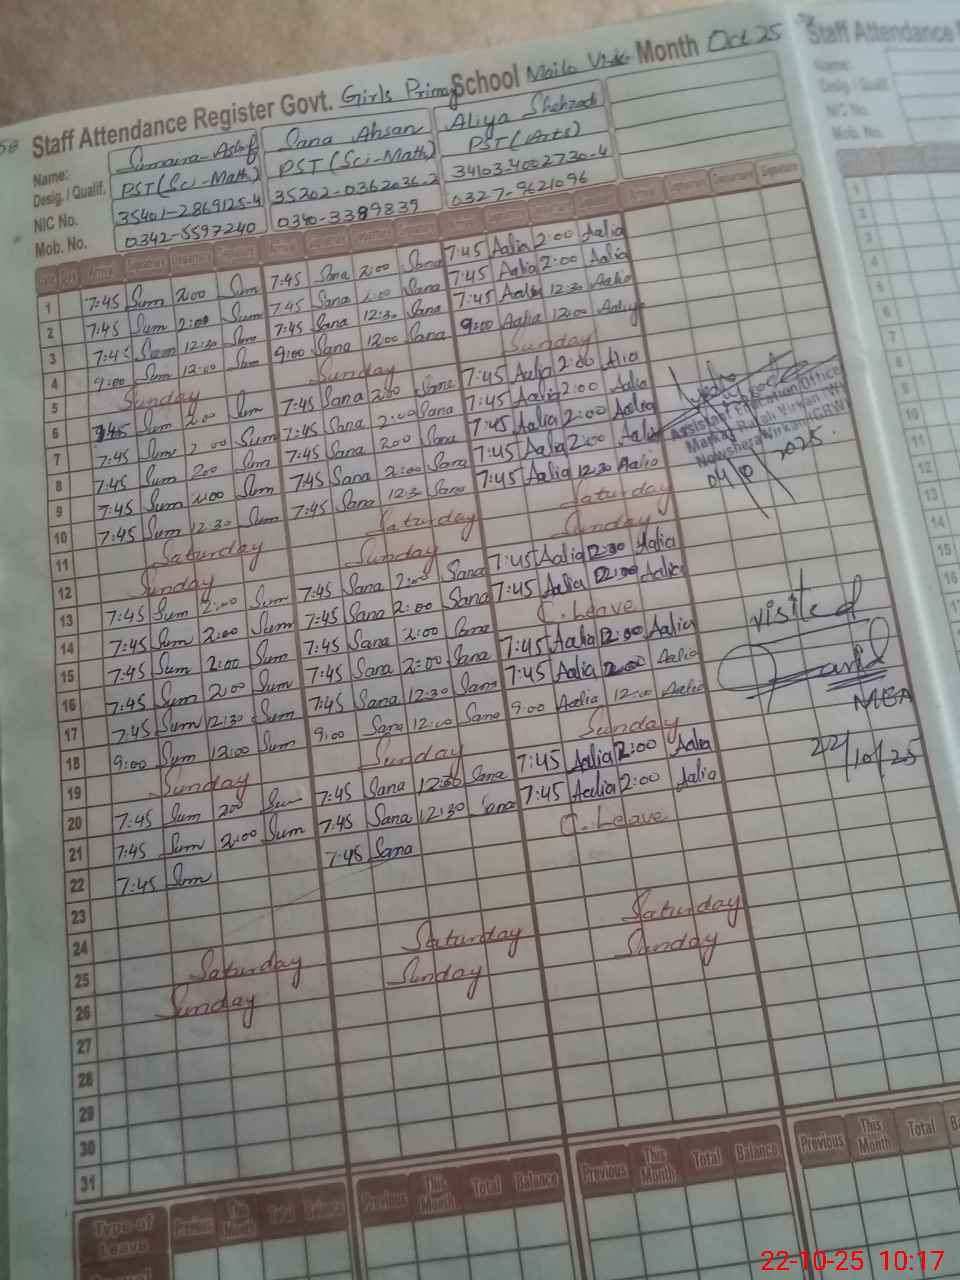 Staff Attendance Register Govt. Girls Primary School Mailo Virk Month Oct 25
Staff Attendance
Name: Sumaira Ashraf Sana Ahsan Aliya Shehzadi
Desig. / Qualif. PST (Sci-Math) PST (Sci-Math) PST (Arts)
NIC No. 35401-2869125-4 35202-0362036-2 34103-4002730-4
Mob. No. 0342-5597240 0340-3389839 0327-9621096
Name:
Desig. / Qualif.
NIC No.
Mob. No.
Arrival Signature Departure Signature Arrival Signature Departure Signature Arrival Signature Departure Signature Arrival Signature Departure Signature
1 7:45 Sum 2:00 Sum 7:45 Sana 2:00 Sana 7:45 Aalia 2:00 Aalia
2 7:45 Sum 2:00 Sum 7:45 Sana 2:00 Sana 7:45 Aalia 2:00 Aalia
3 7:45 Sum 12:30 Sum 7:45 Sana 12:30 Sana 7:45 Aalia 12:30 Aalia
4 9:00 Sum 12:00 Sum 9:00 Sana 12:00 Sana 9:00 Aalia 12:00 Aaliya
5 Sunday Sunday Sunday
6 7:45 Sum 2:00 Sum 7:45 Sana 2:00 Sana 7:45 Aalia 2:00 Alia
7 7:45 Sum 2:00 Sum 7:45 Sana 2:00 Sana 7:45 Aalia 2:00 Aalia
8 7:45 Sum 200 Sum 7:45 Sana 200 Sana 7:45 Aalia 2:00 Aalia
9 7:45 Sum 2:00 Sum 7:45 Sana 2:00 Sana 7:45 Aalia 2:00 Aalia
10 7:45 Sum 12:30 Sum 7:45 Sana 12:30 Sana 7:45 Aalia 12:30 Aalia
11 Saturday Saturday Saturday
12 Sunday Sunday Sunday
13 7:45 Sum 2:00 Sum 7:45 Sana 2:00 Sana 7:45 Aalia 12:30 Aalia
14 7:45 Sum 2:00 Sum 7:45 Sana 2:00 Sana 7:45 Aalia 2:00 Aalia
15 7:45 Sum 2:00 Sum 7:45 Sana 2:00 Sana C. Leave
16 7:45 Sum 2:00 Sum 7:45 Sana 2:00 Sana 7:45 Aalia Aalia
17 7:45 Sum 12:30 Sum 7:45 Sana 12:30 Sana 7:45 Aalia Aalia
18 9:00 Sum 12:00 Sum 9:00 Sana 12:00 Sana 9:00 Aalia 12:00 Aalia
19 Sunday Sunday Sunday
20 7:45 Sum 200 Sum 7:45 Sana 12:30 Sana 7:45 Aalia 2:00 Aalia
21 7:45 Sum 2:00 Sum 7:45 Sana 12:30 Sana 7:45 Aalia 2:00 Aalia
22 7:45 Sum 7:45 Sana C. Leave
23
24
25 Saturday Saturday Saturday
26 Sunday Sunday Sunday
27
28
29
30
31
Assistant Education Officer
Markaz Rajali Virkan (W)
Nowshera Virkan (GRW)
2025.
visited
MEA
10/25
Type of Leave Previous This Month Total Balance Previous This Month Total Balance Previous This Month Total Balance Previous This Month Total
22-10-25 10:17